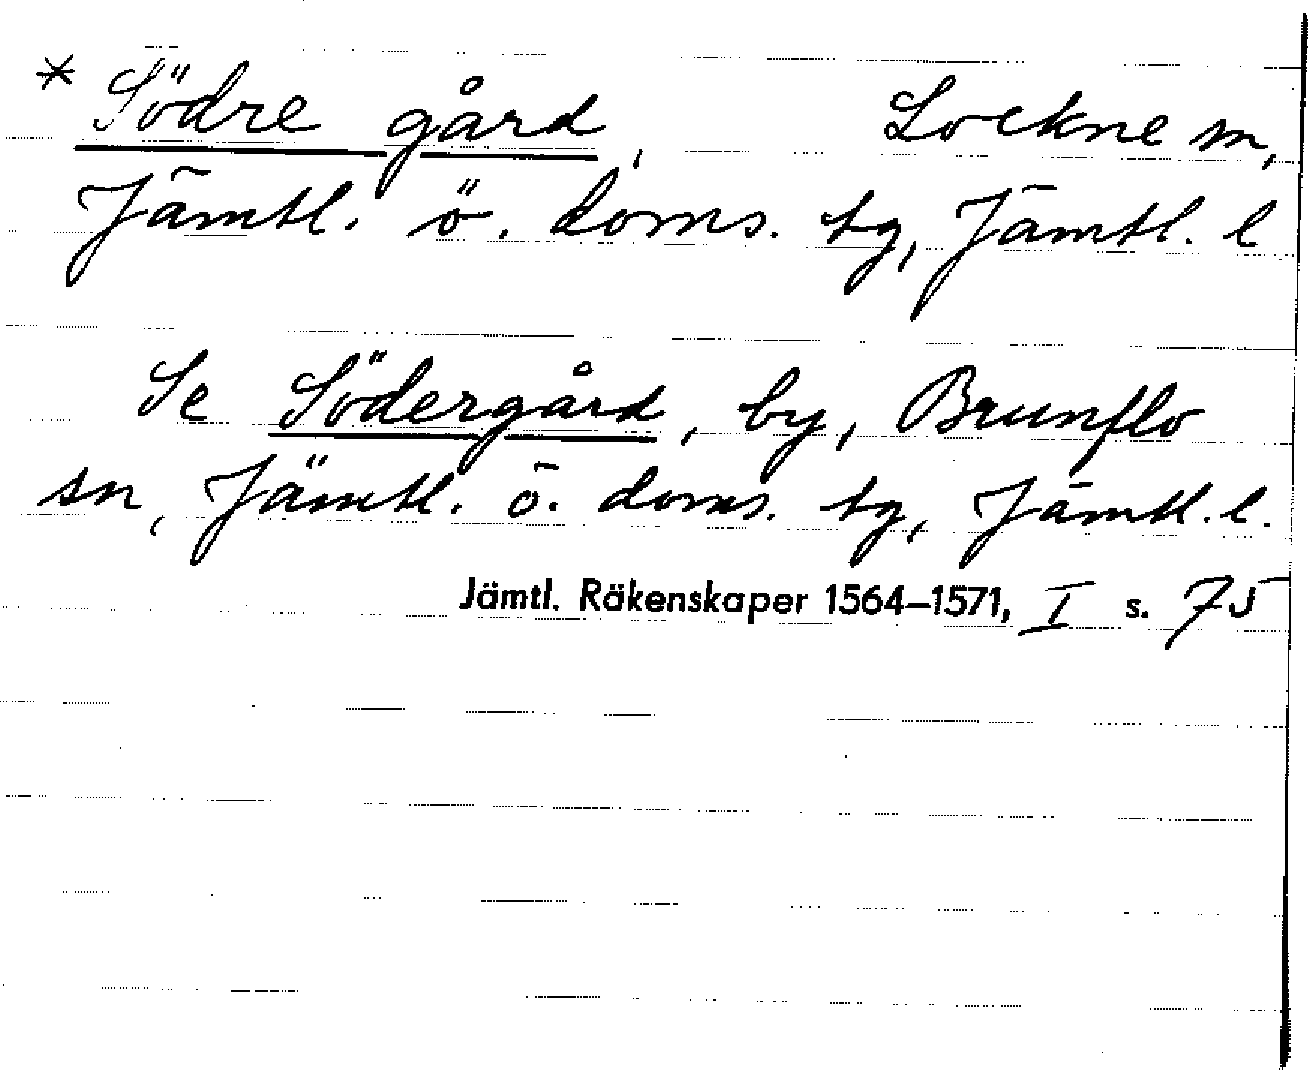 * Södre gård, Lockne sn,
Jämtl. ö. doms. tg, Jämtl. l
Se Södergård, by, Brunflo
sn, Jämtl. ö. doms. tg, Jämtl. l.
Jämtl. Räkenskaper 1564–1571, I s. 75